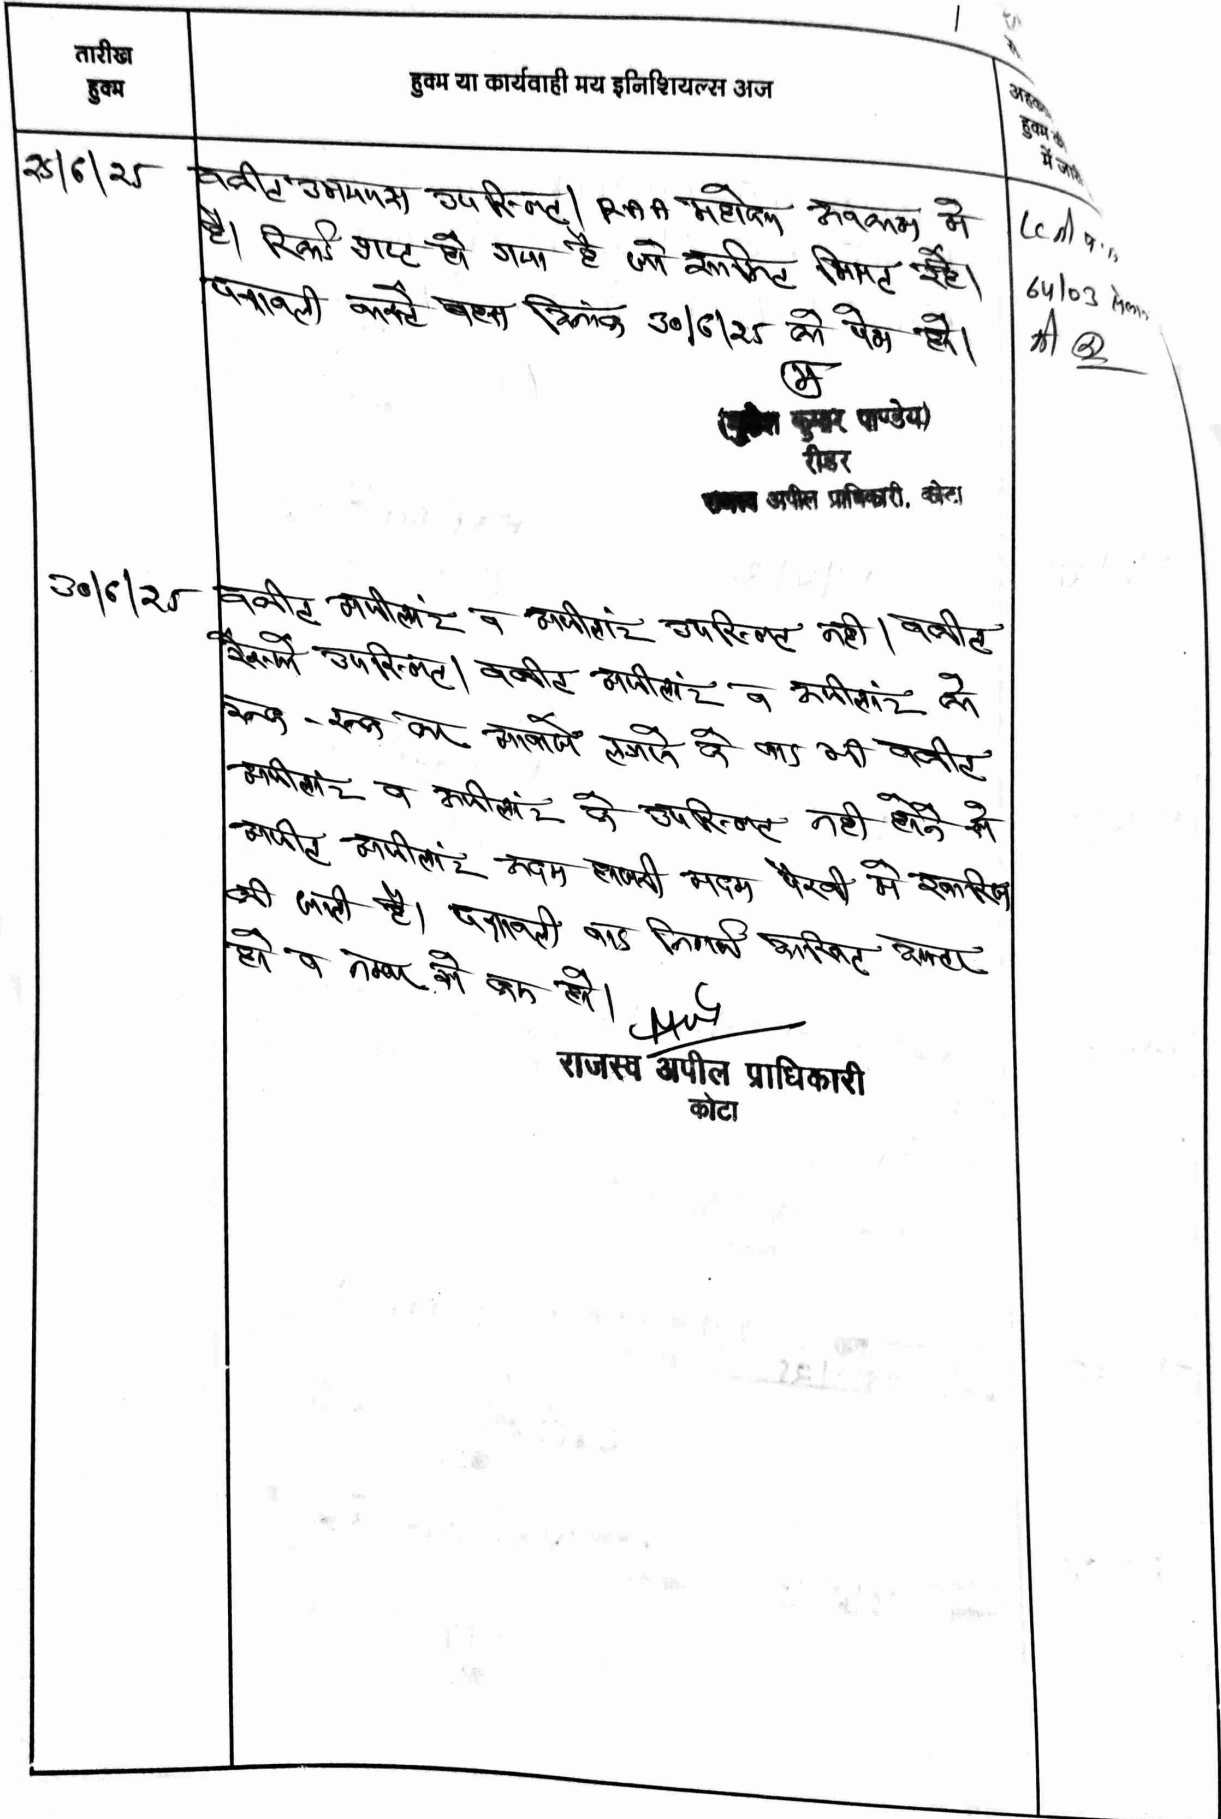 तारीख
हुक्म
हुक्म या कार्यवाही मय इनिशियल्स अज
हुक्म की
में जारी
25/6/25
वकील उभयपक्ष उपस्थित। RAA महोदय अवकाश में
है। रिकॉर्ड प्राप्त हो गया है जो शामिल मिसल रहे।
पत्रावली वास्ते बहस दिनांक 30/6/25 को पेश हो।
LC की
64/03
की 2
कुमार पाण्डेय)
रीडर
राजस्व अपील प्राधिकारी, कोटा
30/6/25
वकील अपीलांट व अपीलांट उपस्थित नही। वकील
रेस्पो उपस्थित। वकील अपीलांट व अपीलांट को
रुक - रुक कर आवाजें लगाने के बाद भी वकील
अपीलांट व अपीलांट के उपस्थित नही होने से
अपील अपीलांट अदम हाजरी अदम पैरवी में खारिज
की जाती है। पत्रावली बाद दाखिल दफ्तर
हो व नम्बर से कम हो।
राजस्व अपील प्राधिकारी
कोटा